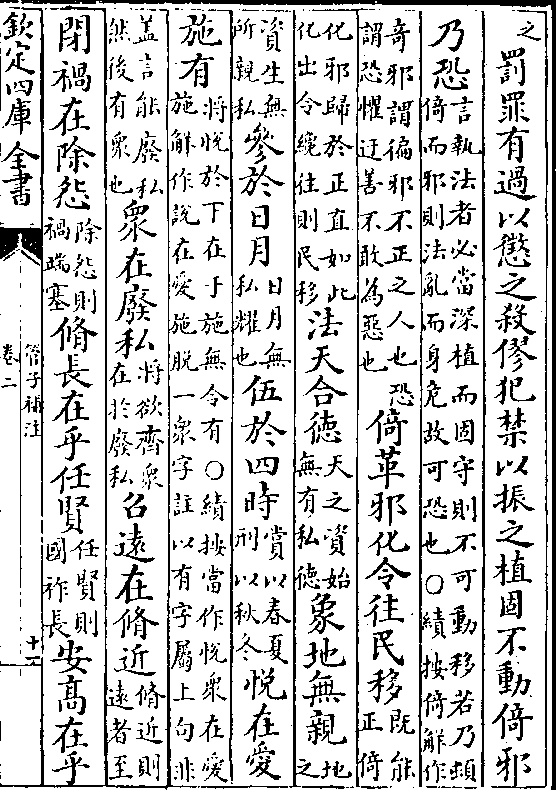 之罰罪有過以懲之殺僇犯禁以振之植固不動倚邪
乃恐言執法者必當深植而固守則不可動移若乃頗倚而邪則法亂而身危故可恐也○績按倚解作
奇邪謂徧邪不正之人也恐謂恐懼迂善不敢為惡也倚革邪化令往民移既能正倚
化邪歸於正直如此化出令纔往則民移法天合德天之資始無有私德象地無親地之
資生無所親私參於日月日月無私耀也伍於四時賞以春夏刑以秋冬悦在愛
施有將悦於下在于施無令有○績按當作悦衆在愛施解作説在愛施脱一衆字註以有字屬上句非
蓋言能廢私然後有衆也衆在廢私將欲齊衆在於廢私召遠在脩近脩近則遠者至
閉禍在除怨除怨則禍端塞脩長在乎任賢任賢則國祚長安高在乎
欽定四庫全書
管子補注
卷二